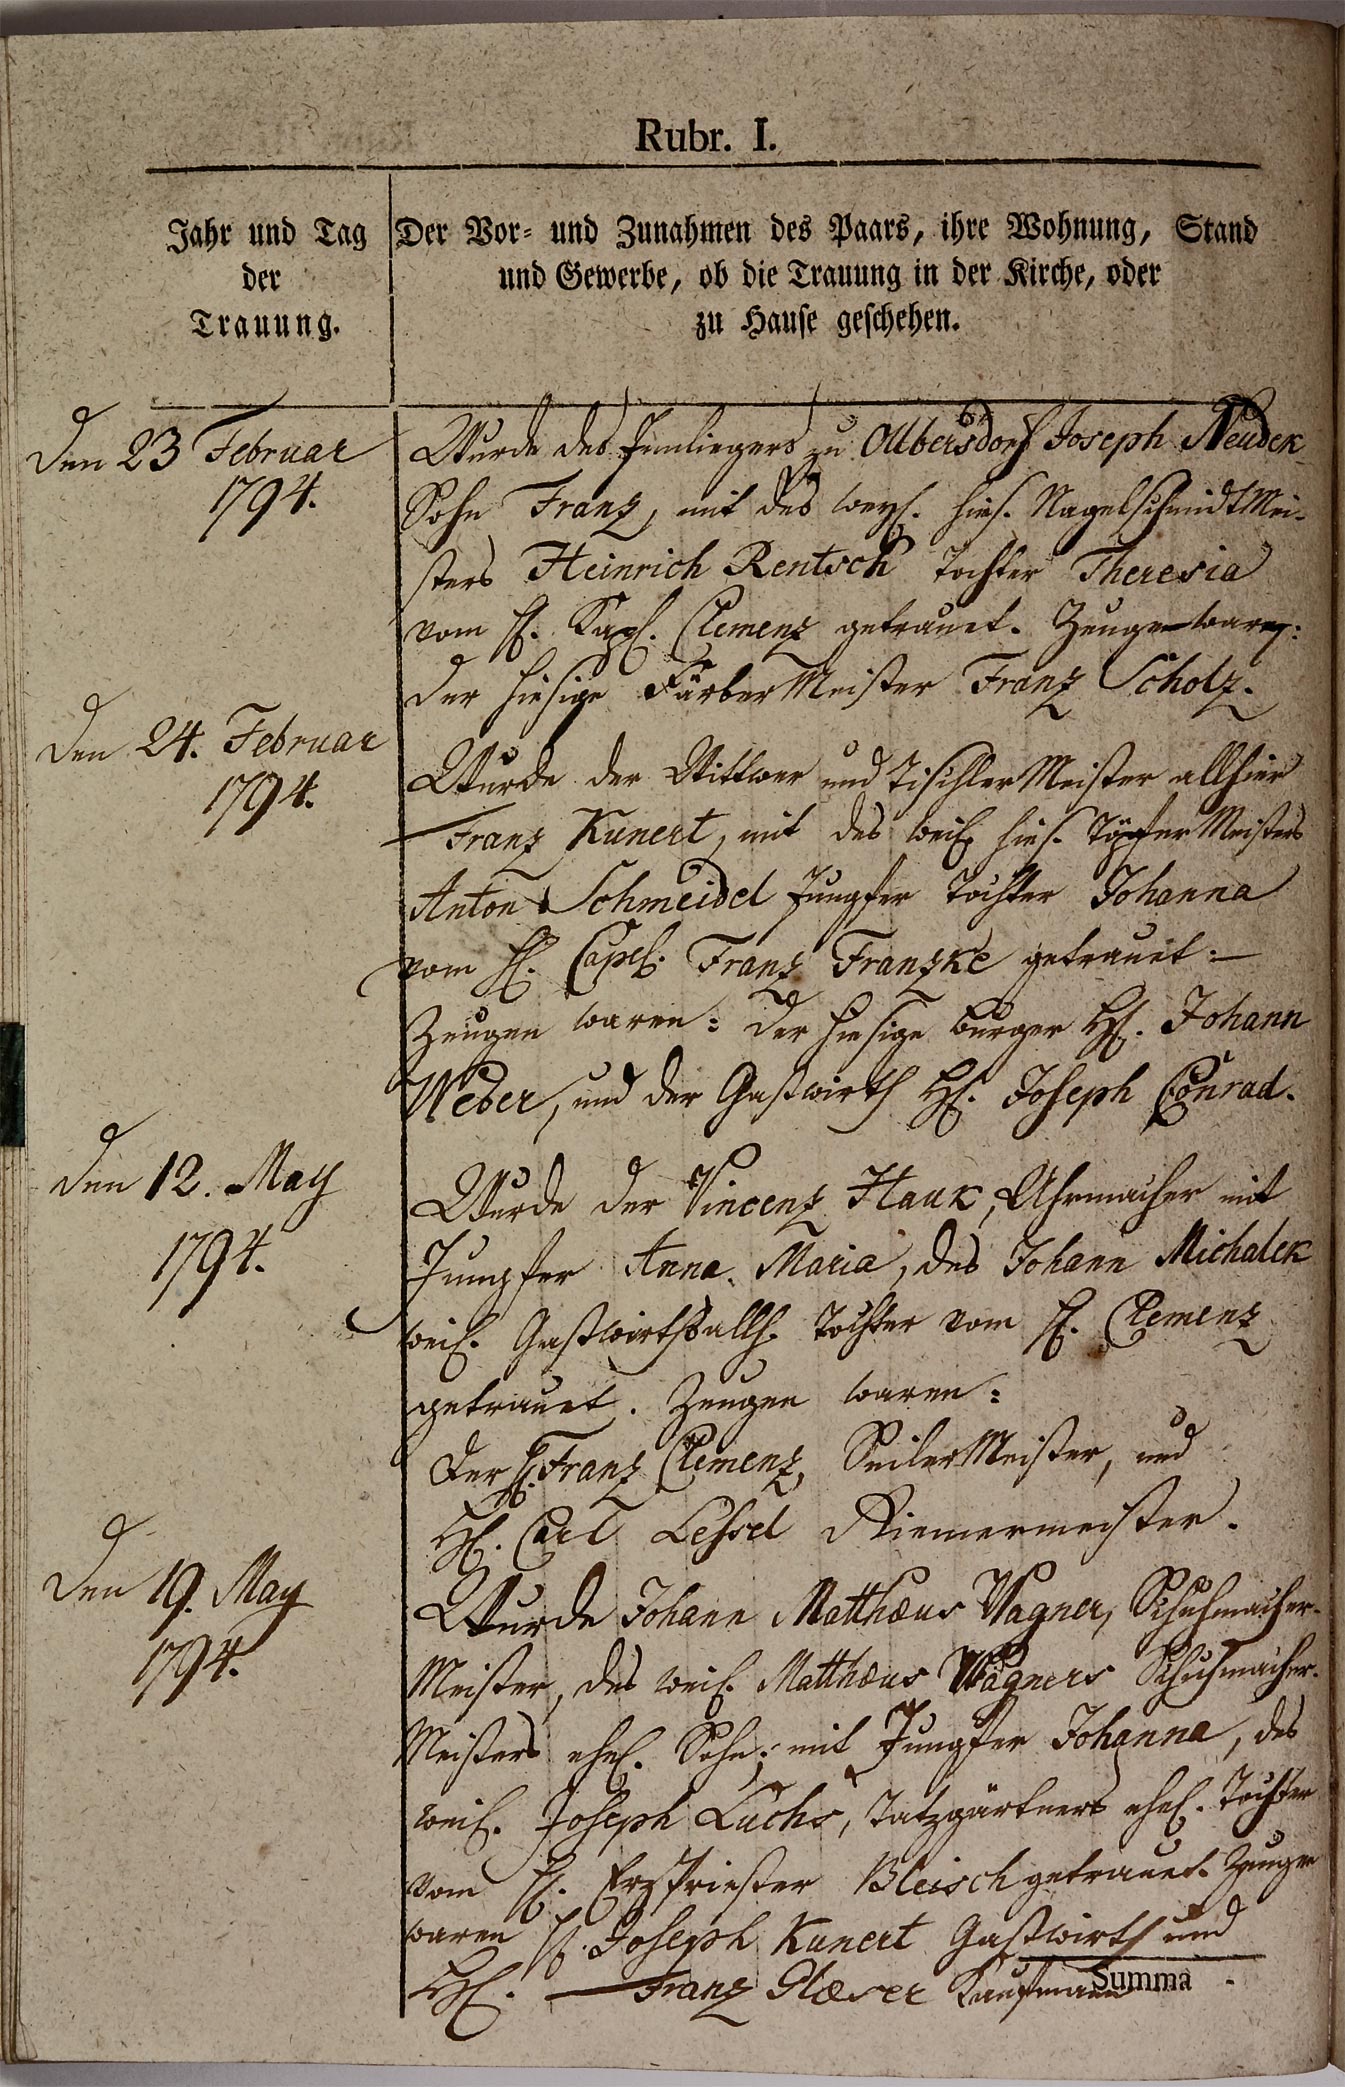 Rubr. I.
Jahr und Tag
der
Trauung.
Der Vor- und Zunahmen des Paars, ihre Wohnung, Stand
und Gewerbe, ob die Trauung in der Kirche, oder
zu Hause geschehen.
Den 23 Februar
1794.
Wurde des Innliegers zu Olbersdorf Joseph Neudek
Sohn Franz, mit des weyl. hies. Nagelschmidt Mei-
sters Heinrich Rentsch Tochter Theresia
vom H. Kapl. Clemenz getrauet. Zeugen waren:
der hiesige Färber Meister Franz Scholz.
Den 24. Februar
1794.
Wurde der Wittwer und Tischler Meister allhier
Franz Kunert, mit des weil. hies. Töpfer Meisters
Anton Schmeidel Jungfer Tochter Johanna
vom H. Capel. Franz Franzke getrauet:
Zeugen waren: der hiesige burger H. Johann
Weber, und der Gastwirth H. Joseph Conrad.
Den 12. May
1794.
Wurde der Vincenz Hauk, Uhrmacher mit
Jumpfer Anna Maria, des Johann Michalek
weil. Gastwirths allh. Tochter vom H. Clemenz
getrauet. Zeugen waren:
Der H. Franz Clemenz, Seiler Meister, und
H. Carl Lessel Riemermeister.
Den 19. May
1794.
Wurde Johann Matthæus Wagner, Schuhmacher-
Meister, des weil. Matthæus Wagners Schuhmacher-
Meisters ehel. Sohn; mit Jungfer Johanna, des
weil. Joseph Luchs, Tatzgärtners ehel. Tochter
vom H. Erzpriester Bleisch getrauet. Zeugen
waren H. Joseph Kunert Gastwirth und
H. Franz Glæser Kaufmann
Summa